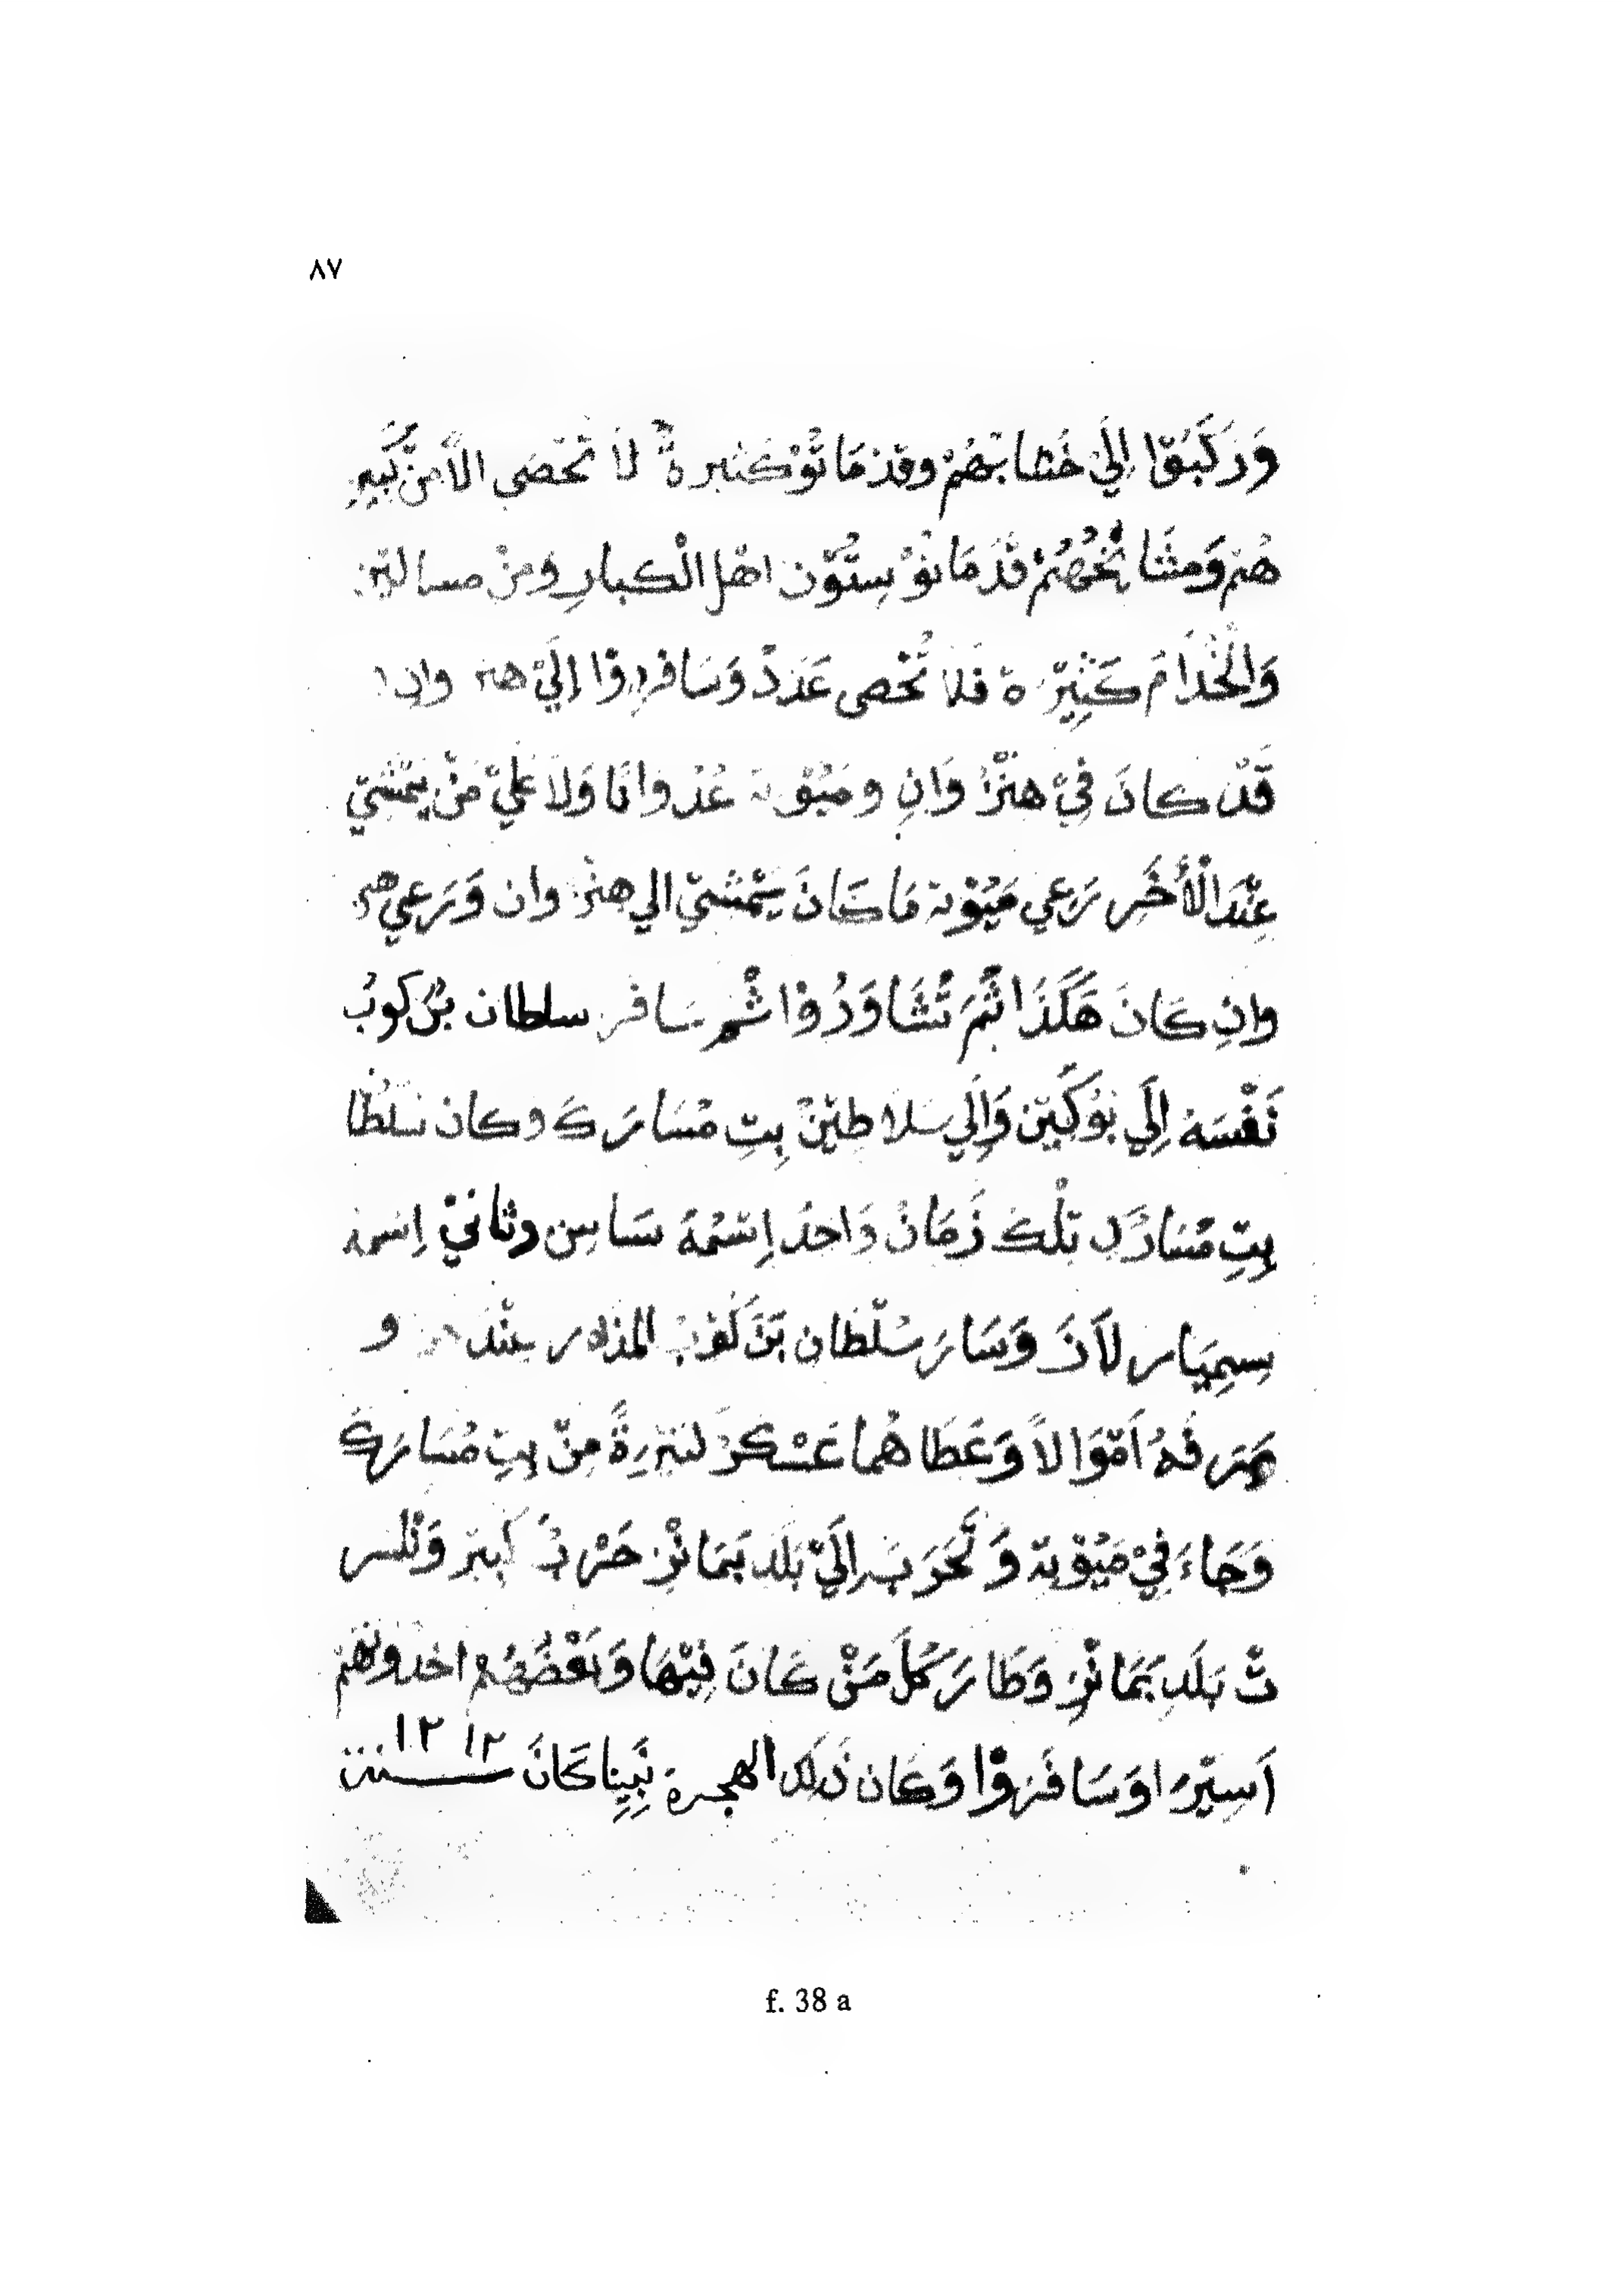 ٨٧
وَرَكَبُوْا اِلَيْ خَشَابِهُمْ وقد مَاتُوْ كثيرة لاَ تحْصَى الاَّ مِنْ كَبِير
هُمْ وَمشَائخُهُمْ قَدْ مَاتُوْ سِتُّوْن اهْل الْكبارِ وَمِنْ مسالين
وَالْخُدَامْ كَثِيْرَة فَلاَ تُحْصى عَدَدْ وَسَافرُوْا اِلَيْ هنز وانِ
قَدْ كانَ فِيْ هنْزُ وَانِ و مَيُوْتة عُدْوَانًا وَلاَ عَلَيْ مَنْ يَمْشِيْ
عِنْدَ الْأَخَر رَعِي مَيُوْتة مَا كَانَ يَمْشِيْ الي هنزُ وان وَرَعِي هنز
وانِ كَانَ هَكَذَا ثُمَّ تَشَاوَرُوْا ثُم سَافر سلطان بْن كوبُ
نَفْسَهُ اِلَي بُوْكِيْن وَاِلَي سَلاطيْنْ بِتِ مْسَارَكَ وكان سَلطَا
بِتِ مْسَارَكَ تلْكَ زَمَانْ وَاحدُ اِسْمُهُ سَاسِن وثانيْ اِسْمهُ
سِمِيَار لاَنَ وَسَارَ سُلْطَان بَنَ كُوْبْ المذكر عِنْدَ و
صَرَفَهُ اَمْوَالاً وَعَطَا هُمَا عَسْكَرْ كَثِيْرَةً مِنْ بِتِ مْسَارَكَ
وَجَاءَ فِيْ مَيُوْتِة وَتَحَرَبَ اِلَيْ بَلَدِ بَمَانْزِ حَرْبٌ كَبِيْر وَتْكَسر
تْ بَلَدِ بَمَانْزِ وَطَارَ كُلَ مَنْ كَانَ فِيْهَا وَبَعْضُهُم اخذونَهُمْ
اَسِيْرًا وَسَافَرُوْا وَكَان ذَلِكَ الهجرة نَبِيِنا كَانَ سنة ١٢ ١٢
f. 38 a